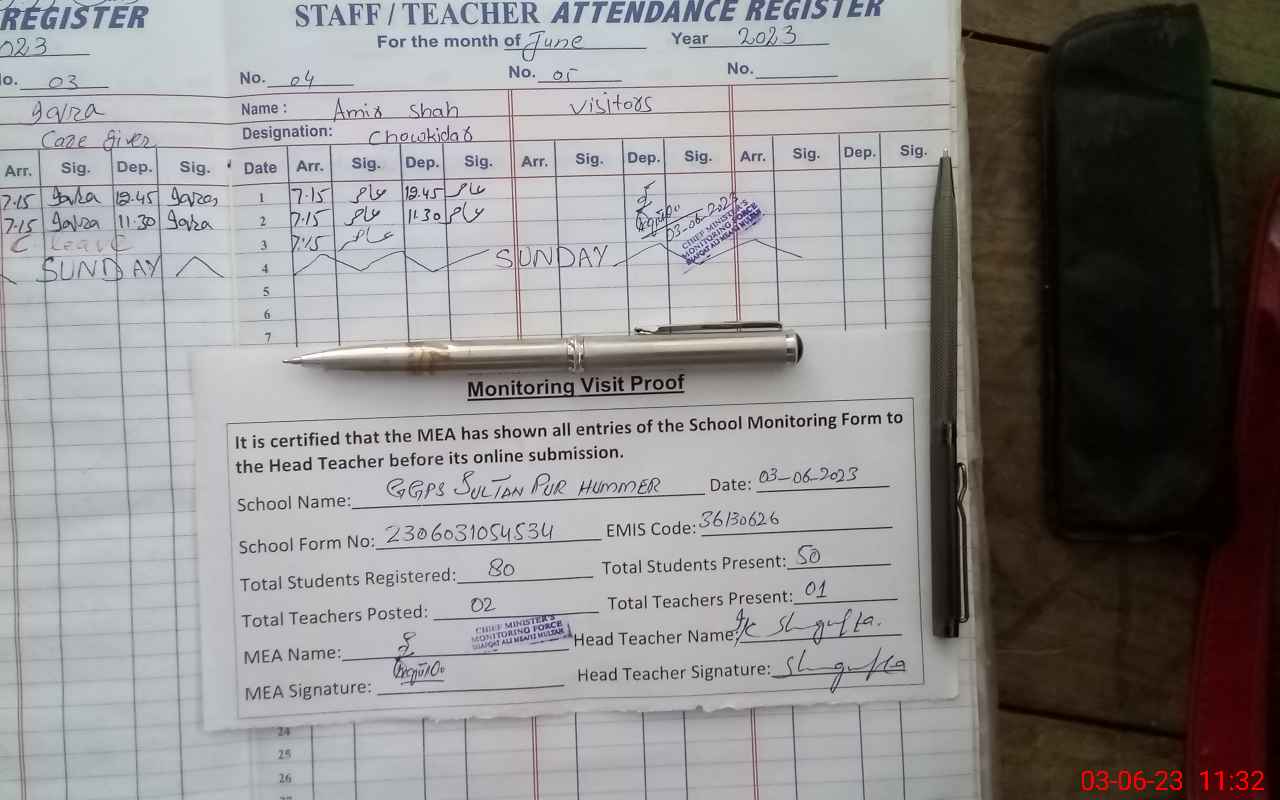 REGISTER
STAFF / TEACHER ATTENDANCE REGISTER
2023
For the month of June Year 2023
No. 03
No. 04
No. 05
No.
Iqra
Name : Amir Shah
visitors
Care Giver
Designation: Chowkidar
Arr. Sig. Dep. Sig.
Date Arr. Sig. Dep. Sig. Arr. Sig. Dep. Sig. Arr. Sig. Dep. Sig.
7.15 Iqra 12.45 Iqra
1 7.15 12.45
7.15 Iqra 11.30 Iqra
2 7.15 11.30
03-06-2023
CHIEF MINISTER'S
MONITORING FORCE
C Leave
3 7.15
SUNDAY
4 SUNDAY
5
6
7
Monitoring Visit Proof
It is certified that the MEA has shown all entries of the School Monitoring Form to
the Head Teacher before its online submission.
School Name: GGPS SULTAN PUR HUMMER Date: 03-06-2023
School Form No: 2306031054534 EMIS Code: 36130626
Total Students Registered: 80 Total Students Present: 50
Total Teachers Posted: 02 Total Teachers Present: 01
CHIEF MINISTER'S
MONITORING FORCE
MEA Name: Head Teacher Name: Shagufta.
MEA Signature: Head Teacher Signature: Shagufta
24
25
26
03-06-23 11:32